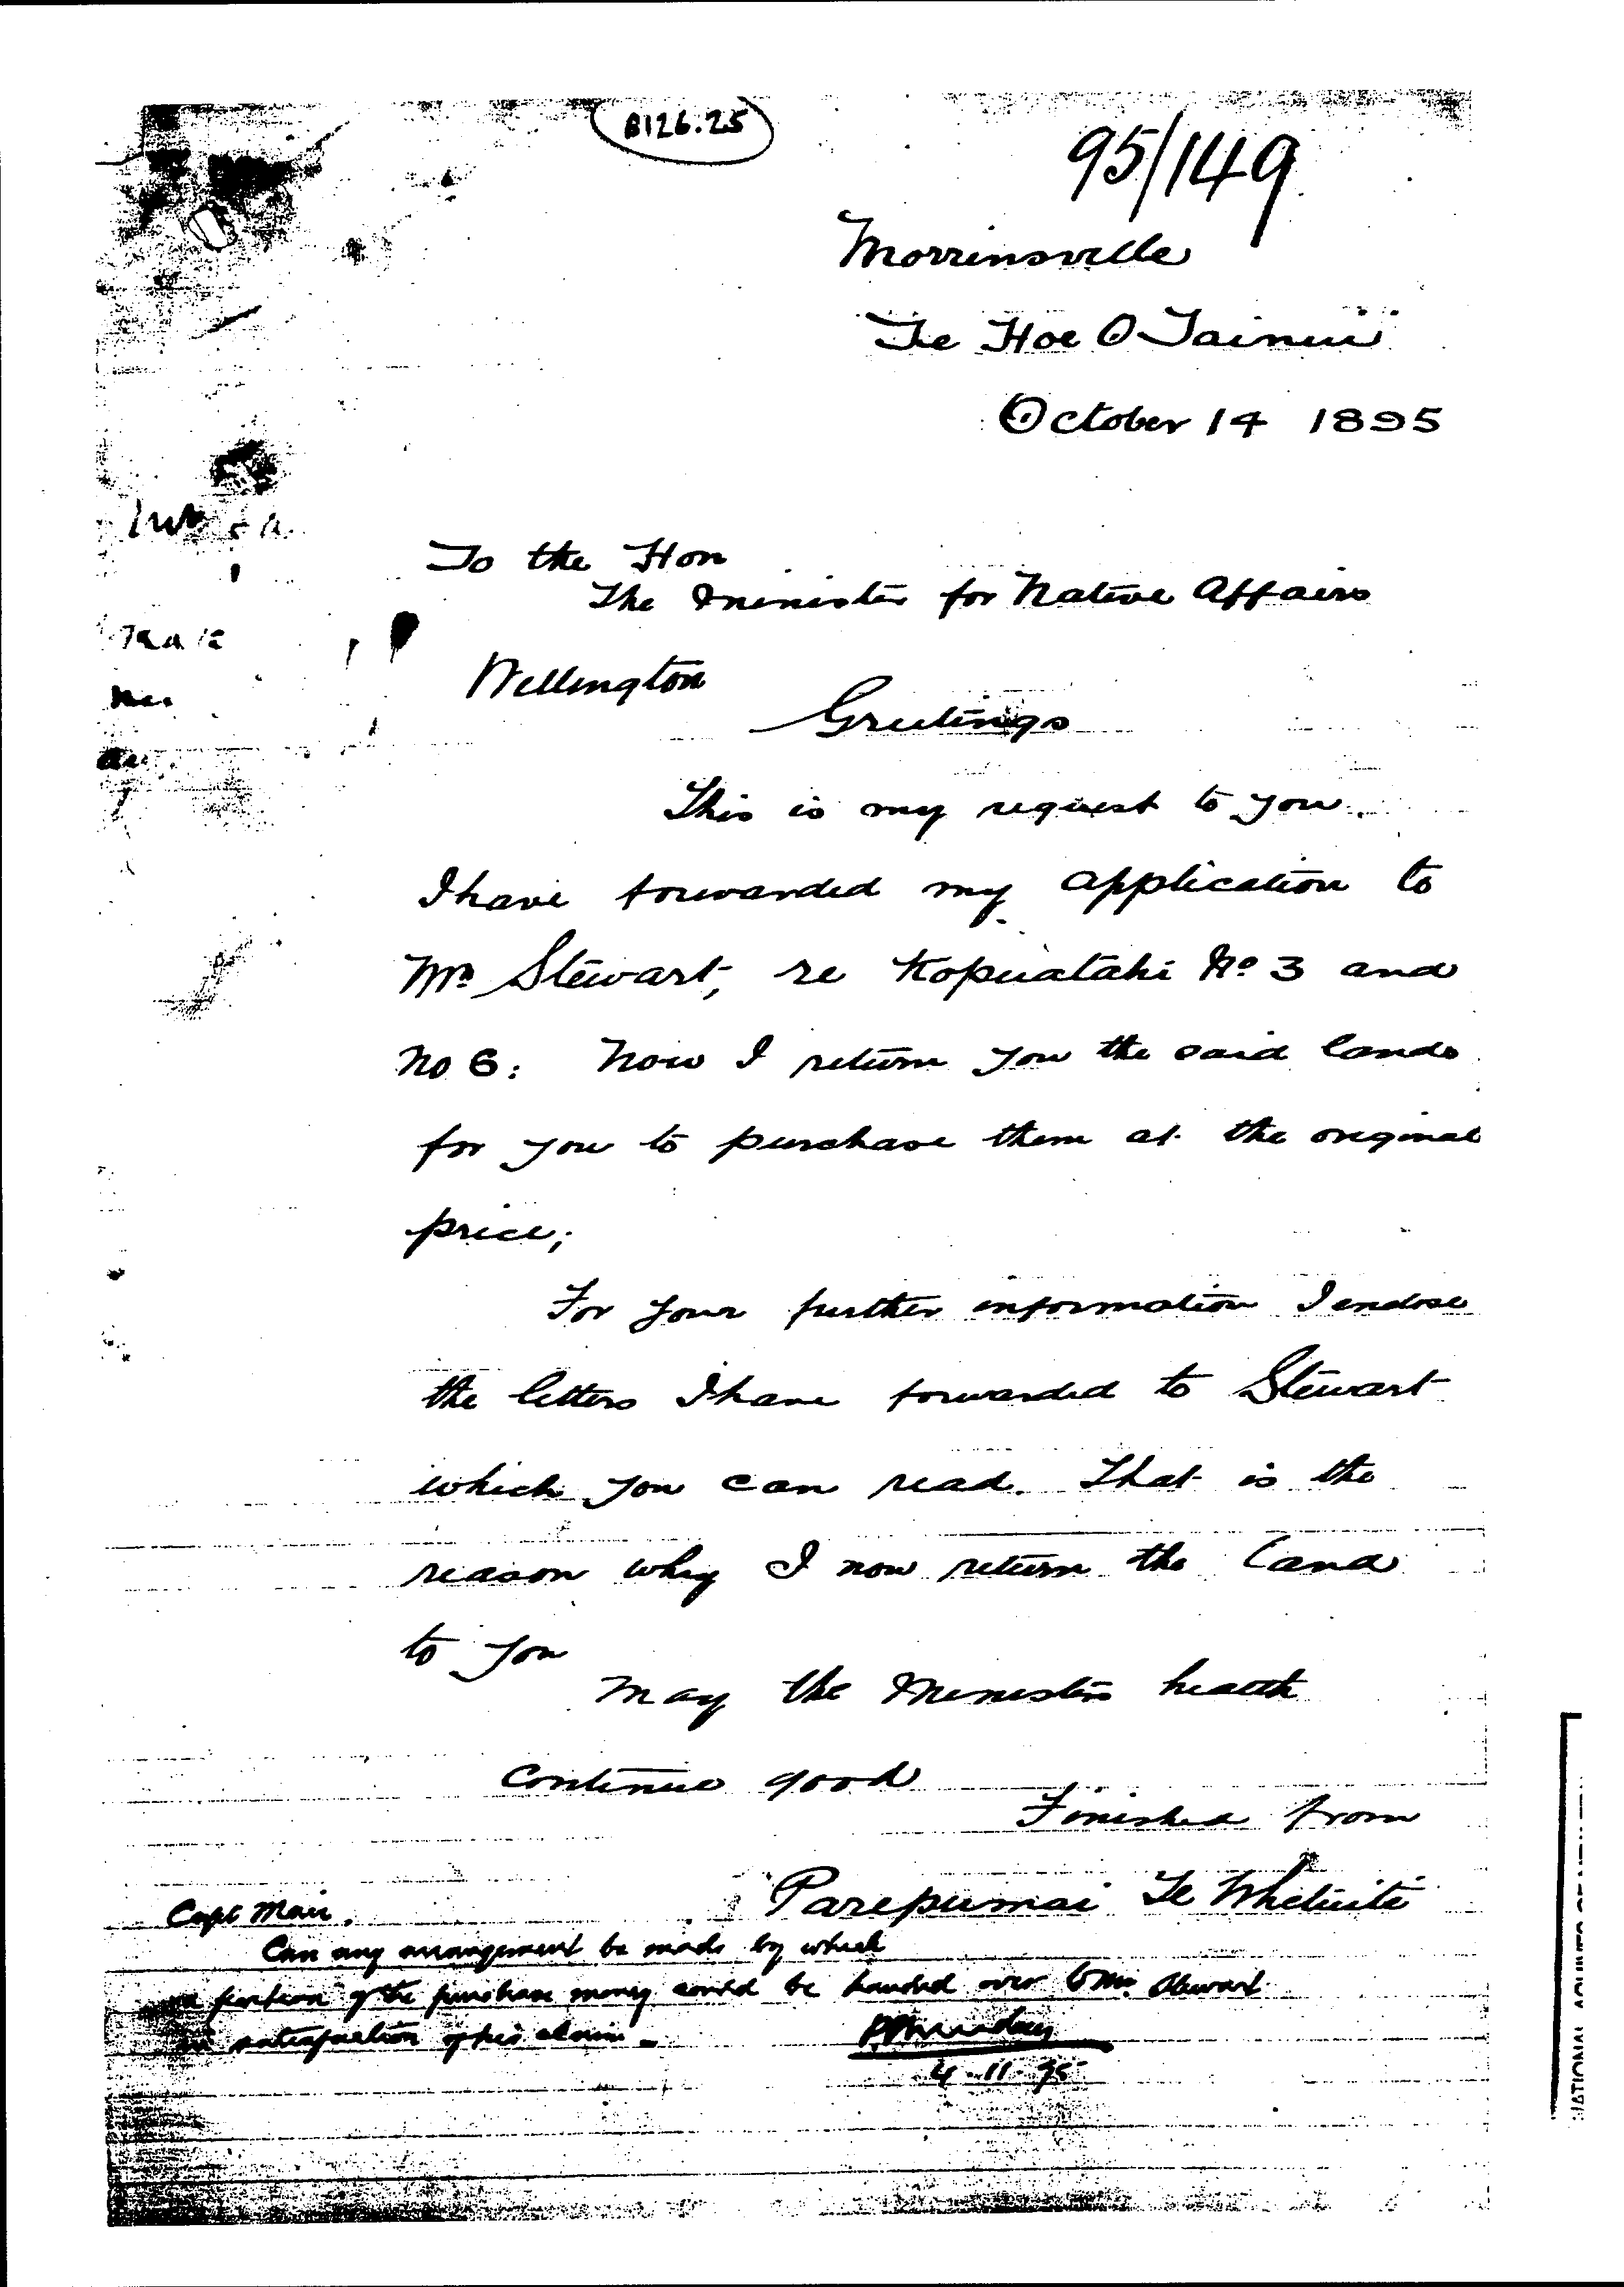 B126.25
95/149
Morrinsville
Te Hoe O Tainui
October 14 1895
To the Hon
The Minister for Native Affairs
Wellington
Greetings
This is my request to you.
I have forwarded my application to
Mr Stewart, re Kopuatahi No 3 and
No 6: Now I return you the said lands
for you to purchase them at the original
price;
For your further information I enclose
the letters I have forwarded to Stewart
which you can read. That is the
reason why I now return the land
to you
May the Ministers health
Continue good
Finished from
Parepumai Te Whetuiti
Capt Mair.
Can any arrangement be made by which
a portion of the purchase money could be handed over to Mr. Stewart
in satisfaction of his claim.
4-11-95